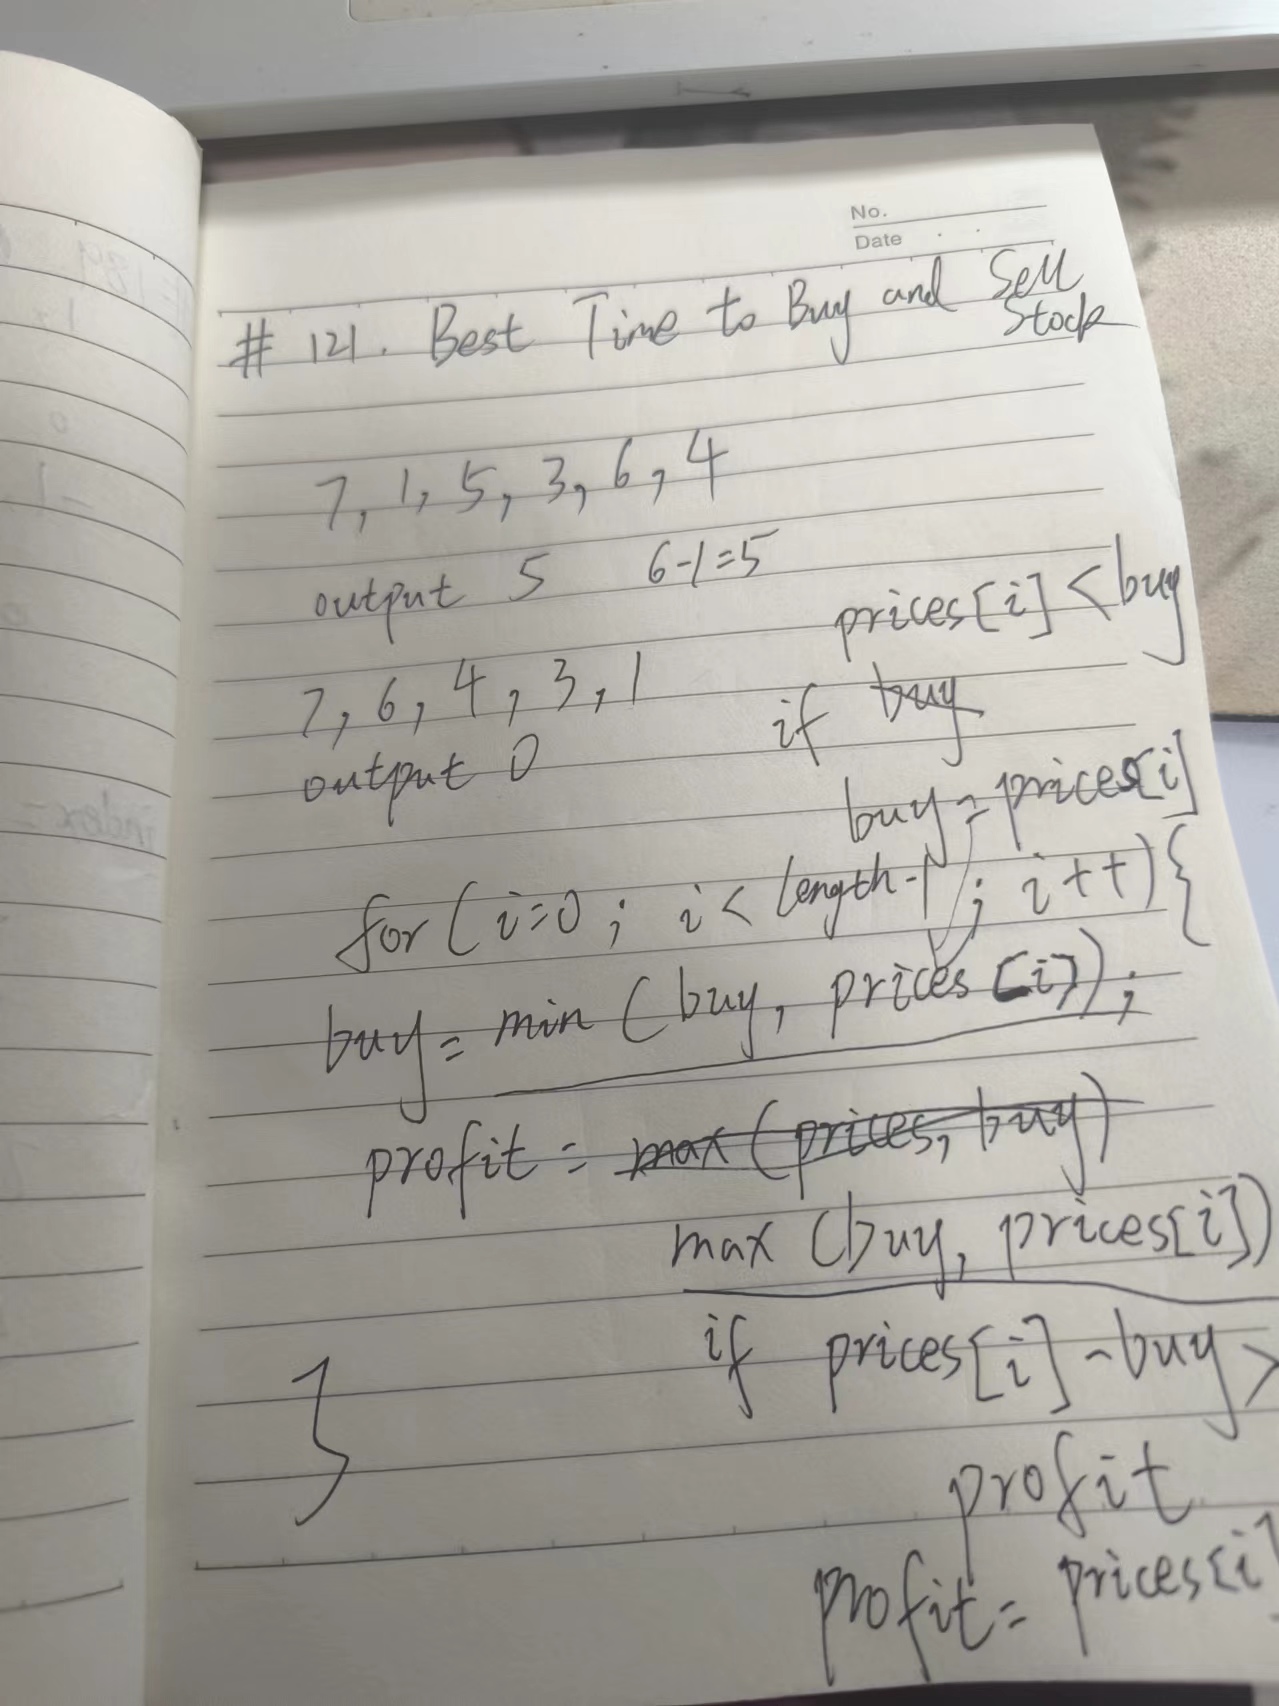 No.
Date
# 121. Best Time to Buy and Sell
Stock
7, 1, 5, 3, 6, 4
output 5 6-1=5
prices[i] < buy
7, 6, 4, 3, 1
if buy
output 0
buy = prices[i]
for (i=0; i < length-1; i++) {
buy = min (buy, prices [i]);
profit = max (prices, buy)
max (buy, prices[i])
if prices[i] - buy >
profit
}
profit = prices[i]